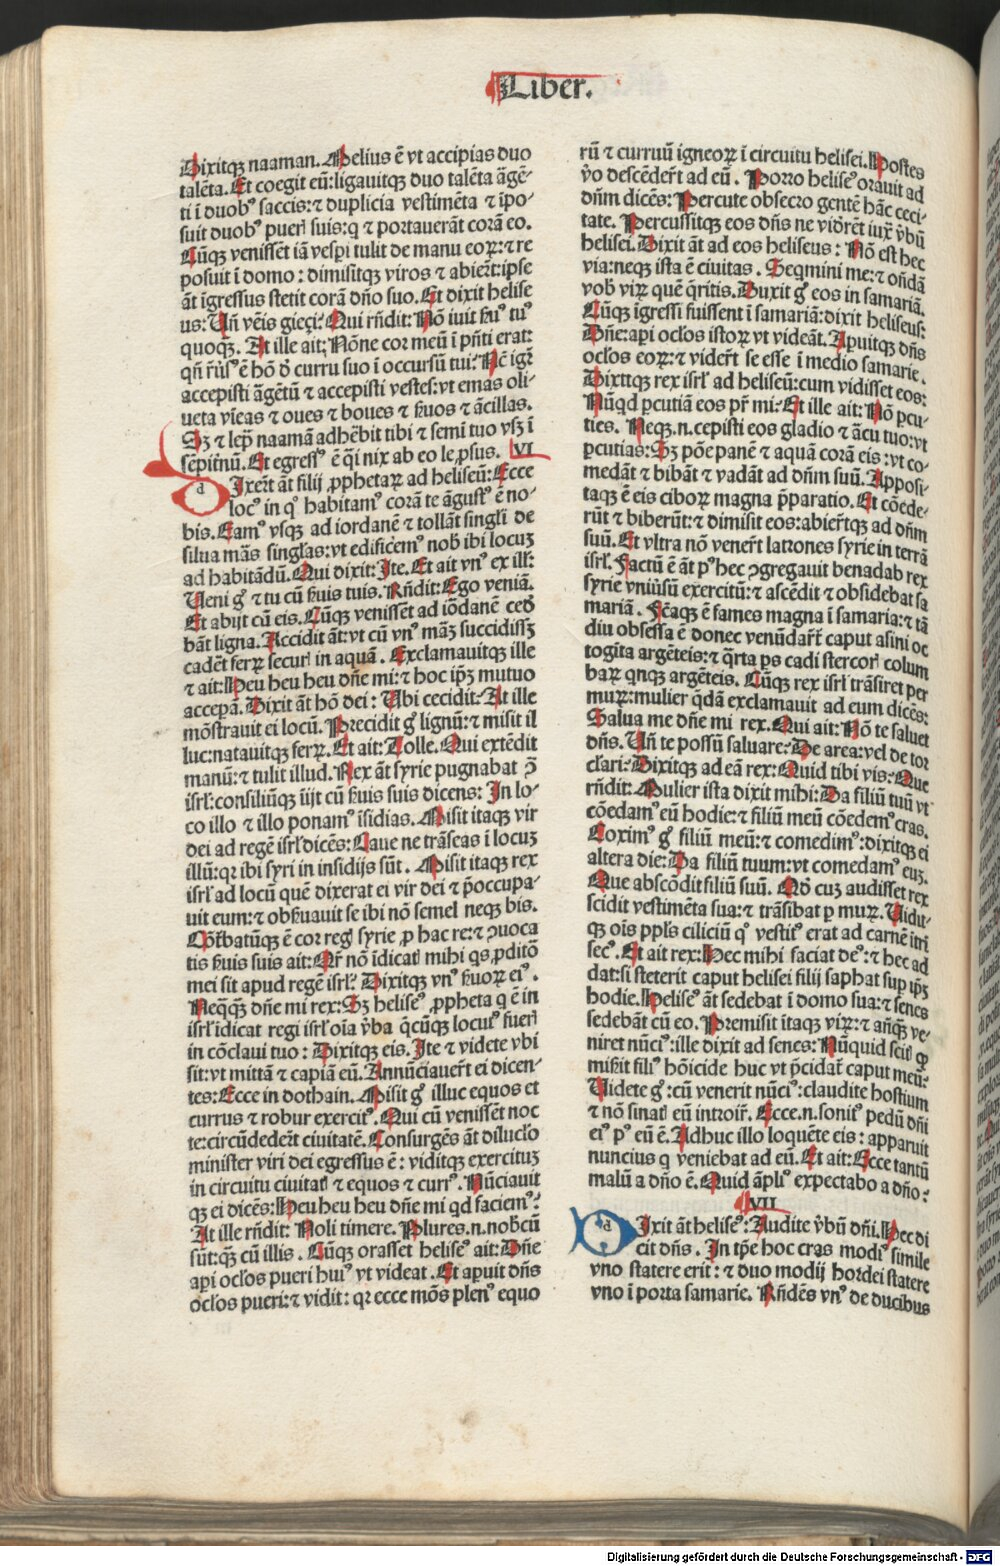 Liber.
Dixitqꝫ naaman. Melius ē vt accipias duo
talēta. Et coegit eū: ligauitqꝫ duo talēta āgē⸗
ti ī duobꝰ saccis: ⁊ duplicia vestimēta ⁊ ipo⸗
suit duobꝰ pueri suis: q ⁊ portauerāt corā eo.
Cūqꝫ venissēt iā vespi tulit de manu eoꝝ: ⁊ re
posuit ī domo: dimisitqꝫ viros ⁊ abierūt: ipse
āt īgressus stetit corā dño suo. Et dixit helise
us: Uñ vēis gieçi? Qui rñdit: Nō iuit ẜuꝰ tuꝰ
quoqꝫ. At ille ait: Nōne cor meū ī pñti erat:
qñ rẜus ē hō ď curru suo ī occursū tui? Nē igr̃
accepisti āgētū ⁊ accepisti vestes: vt emas oli⸗
ueta vīeas ⁊ oues ⁊ boues ⁊ ẜuos ⁊ ācillas.
Sꝫ ⁊ lepꝰ naamā adhēbit tibi ⁊ semī tuo vsꝫ ī
sēpitnū. Et egressꝰ ē q̄i nix ab eo leꝓsus. VI
d Ixerūt āt filij ꝓphetaꝝ ad heliseū: Ecce
locꝰ in qꝰ habitamꝰ corā te āgustꝰ ē no⸗
bis. Eamꝰ vsqꝫ ad iordanē ⁊ tollāt singli de
silua māṡ singl̃as: vt edificemꝰ nob̃ ibi locuꝫ
ad habitādū. Qui dixit: Ite. Et ait vnꝰ ex ill̃:
Ueni gͦ ⁊ tu cū ẜuis tuis. Rñdit: Ego veniā.
Et abijt cū eis. Cūqꝫ venissēt ad iōdanē cedē
bāt ligna. Accidit āt: vt cū vnꝰ māꝫ succidissꝫ
cadēt ferꝝ securi in aquā. Exclamauitqꝫ ille
⁊ ait: Heu heu heu dñe mi: ⁊ hoc ipꝫ mutuo
accepā. Dixit āt hō dei: Ubi cecidit: At ille
mōstrauit ei locū. Precidit gͦ lignū: ⁊ misit il
luc: natauitqꝫ ferꝝ. Et ait: Tolle. Qui extēdit
manū: ⁊ tulit illud. Rex āt syrie pugnabat ꝯ̄
isrl̃: consiliūqꝫ ījt cū ẜuis suis dicens: In lo⸗
co illo ⁊ illo ponamꝰ īsidias. Misit itaqꝫ vir
dei ad regē isrl̃ dicēs: Caue ne trāseas ī locuꝫ
illū: qꝛ ibi syri in insidijs sūt. Misit itaqꝫ rex
isrl̃ ad locū quē dixerat ei vir dei ⁊ p̄occupa⸗
uit eum: ⁊ obẜuauit se ibi nō semel neqꝫ bis.
Cōt̃batūqꝫ ē cor regl̃ syrie ꝓ hac re: ⁊ ꝯuoca
tis ẜuis suis ait: Qr̃ nō īdicatl̃ mihi qs ꝓditō
mei sit apud regē isrl̃? Dixitqꝫ vnꝰ ẜuoꝝ eiꝰ.
Neqqꝫ̄ dñe mi rex: Sꝫ heliseꝰ ꝓpheta q ē in
isrl̃ idicat regi isrl̃ oīa v̄ba q̄cūqꝫ locutꝰ fueri
in cōclaui tuo: Dixitqꝫ eis. Ite ⁊ videte vbi
sit: vt mittā ⁊ capiā eū. Annūciauer̃t ei dicen⸗
tes: Ecce in dothain. Misit gͦ illuc equos et
currus ⁊ robur exercitꝰ. Qui cū venissēt noc
te: circūdeder̃t ciuitatē. Consurgēs āt diluc̃lo
minister viri dei egressus ē: viditqꝫ exercituꝫ
in circuitu ciuitatl̃ ⁊ equos ⁊ currꝰ. Nūciauit
qꝫ ei dicēs: Heu heu heu dñe mi qd faciemꝰ?
At ille rñdit: Noli timere. Plures.n.nobcū
sūt: qꝫ̄ cū illis. Cūqꝫ orasset heliseꝰ ait: Dñe
api oc̃los pueri huiꝰ vt videat. Et apuit dñs
oc̃los pueri: ⁊ vidit: qꝛ ecce mōs plenꝰ equo
rū ⁊ curruū igneoꝝ ī circuitu helisei. Hostes
v̊o descēder̃t ad eū. Porro heliseꝰ orauit ad
dñm dicēs: Percute obsecro gentē hāc ceci⸗
tate. Percussitqꝫ eos dñs ne vidēr̃t iux̃ v̄bū
helisei. Dixit āt ad eos heliseus: Nō est hec
via: neqꝫ ista ē ciuitas. Seqmini me: ⁊ oñdā
vob̃ viꝝ quē q̄ritis. Duxit gͦ eos in samariā.
Cūqꝫ īgressi fuissent ī samariā: dixit heliseus:
Dñe: api oc̃los istoꝝ vt videāt. Apuitqꝫ dñs
oc̃los eoꝝ: ⁊ vider̃t se esse ī medio samarie.
Dixitqꝫ rex isrl̃ ad heliseū: cum vidisset eos:
Nūqd ꝑcutiā eos pr̃ mi? Et ille ait: Nō ꝑcu⸗
ties. Neqꝫ.n.cepisti eos gladio ⁊ ācu tuo: vt
ꝑcutias: Sꝫ pōe panē ⁊ aquā corā eis: vt co⸗
medāt ⁊ bibāt ⁊ vadāt ad dñm suū. Apposi⸗
taqꝫ ē eis ciboꝝ magna p̄paratio. Et cōede⸗
rūt ⁊ biberūt: ⁊ dimisit eos: abier̃tqꝫ ad dñm
suū. Et vltra nō vener̃t latrones syrie in terrā
isrl̃. Factū ē āt pꝰ hec ꝯgregauit benadab rex
syrie vniūsū exercitū: ⁊ ascēdit ⁊ obsidebat sa
mariā. Fēaqꝫ ē fames magna ī samaria: ⁊ tā
diu obsessa ē donec venūdar̃t caput asini oc
togīta argēteis: ⁊ q̄rta ps cadi stercori colum
baꝝ qnqꝫ argēteis. Cūqꝫ rex isrl̃ trāsiret per
muꝝ: mulier q̄dā exclamauit ad eum dicēs:
Salua me dñe mi rex. Qui ait: Nō te saluet
dñs. Uñ te possū saluare? De area: vel de tor
clari? Dixitqꝫ ad eā rex: Quid tibi vis? Que
rñdit: Mulier ista dixit mihi: Da filiū tuū vt
cōedamꝰ eū hodie: ⁊ filiū meū cōedemꝰ cras.
Coximꝰ gͦ filiū meū: ⁊ comedimꝰ: dixitqꝫ ei
altera die: Da filiū tuum: vt comedamꝰ euꝫ.
Que abscōdit filiū suū. Qď cuꝫ audisset rex
scidit vestimēta sua: ⁊ trāsibat p muꝝ. Uidit⸗
qꝫ ois ppl̃s ciliciū qͦ vestitꝰ erat ad carnē itri̅
secꝰ. Et ait rex: Hec mihi faciat deꝰ: ⁊ hec ad
dat: si steterit caput helisei filij saphat sup ipꝫ
hodie. Heliseꝰ āt sedebat ī domo sua: ⁊ senes
sedebāt cū eo. Premisit itaqꝫ viꝝ: ⁊ añqꝫ ve⸗
niret nūciꝰ: ille dixit ad senes: Nūquid scitl̃ ꝙ
misit filiꝰ hōicide huc vt p̄cidat̃ caput meū?
Uidete gͦ: cū venerit nūciꝰ: claudite hostium
⁊ nō sinatl̃ eū introir̃. Ecce.n.sonitꝰ pedū dñi
eiꝰ pꝰ eū ē. Adhuc illo loquēte eis: apparuit
nuncius q veniebat ad eū. Et ait: Ecce tantū
malū a dño ē. Quid āpliꝰ expectabo a dño?
VII
d Ixit āt heliseꝰ: Audite v̄bū dñi. Hec di
cit dñs. In tp̃e hoc cras modiꝰ simile
vno statere erit: ⁊ duo modij hordei statere
vno ī porta samarie. Rñdēs vnꝰ de ducibus
Digitalisierung gefördert durch die Deutsche Forschungsgemeinschaft - DFG